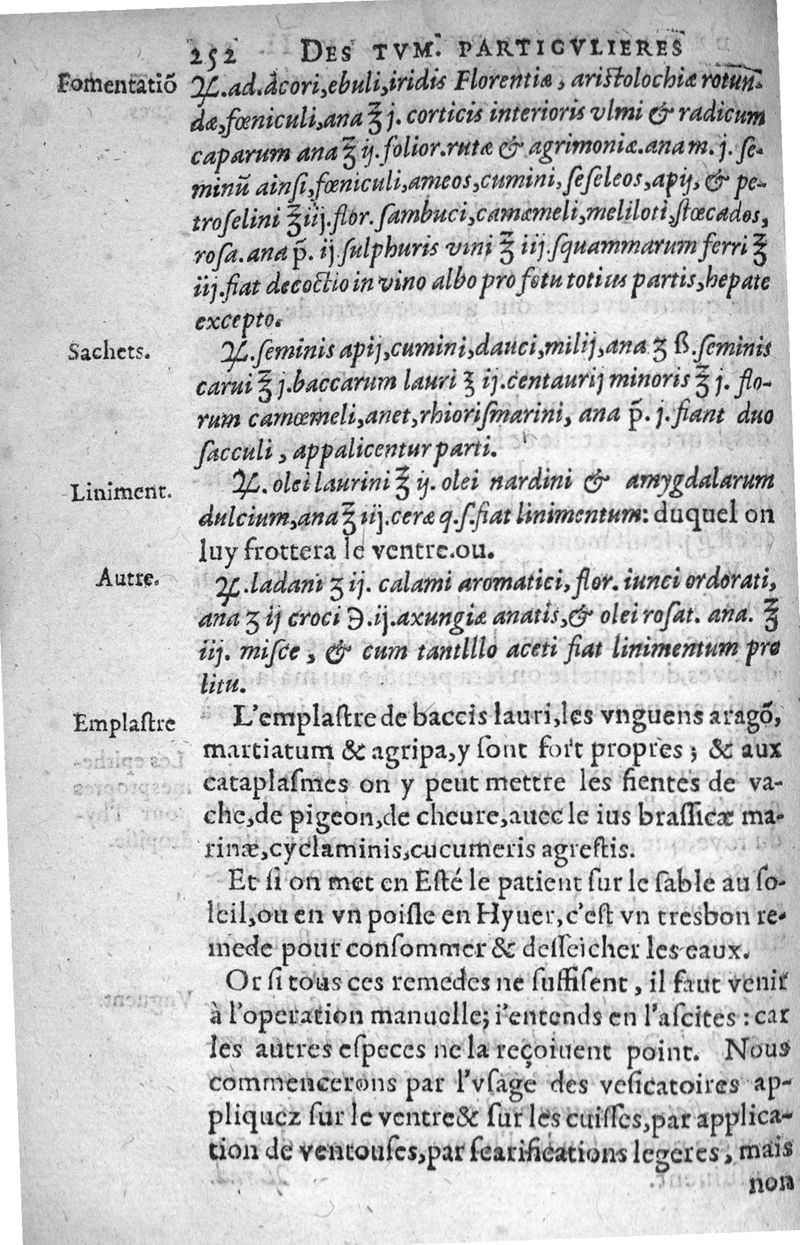 252 DES TVM. PARTICVLIERES
Fomentatiõ
♃.ad.acori,ebuli,iridis Florentiæ, aristolochiæ rotun-
dæ,fœniculi,ana ℥ j. corticis interioris vlmi & radicum
caparum ana ℥ ij.folior.rutæ & agrimoniæ.ana m. j. ſe-
minũ ainſi,fœniculi,ameos,cumini,ſeſeleos,apij, & pe-
troſelini ℥iij.flor.ſambuci,camæmeli,meliloti,ſtœcados,
roſa.ana p̃. ij.ſulphuris vini ℥ iij.ſquammarum ferri ℥
iij.fiat decoctio in vino albo pro fotu totius partis,hepate
excepto.
Sachets.
♃.ſeminis apij,cumini,dauci,milij,ana ʒ ß.ſeminis
carui ℥ j.baccarum lauri ʒ ij.centaurij minoris ℥ j. flo-
rum camœmeli,anet,rhioriſmarini, ana p̃. j.fiant duo
ſacculi, appalicentur parti.
Liniment.
♃. olei laurini ℥ ij. olei nardini & amygdalarum
dulcium,ana ℥ iij.ceræ q.ſ.fiat linimentum: duquel on
luy frottera le ventre.ou.
Autre.
♃.ladani ʒ ij. calami aromatici, flor. iunci ordorati,
ana ʒ ij croci ℈.ij.axungiæ anatis,& olei roſat. ana. ℥
iij. miſce, & cum tantlllo aceti fiat linimentum pro
litu.
Emplaſtre
L'emplaſtre de baccis lauri,les vnguens aragõ,
martiatum & agripa,y ſont fort propres; & aux
cataplaſmes on y peut mettre les fientes de va-
che,de pigeon,de cheure,auec le ius braſſicæ ma-
rinæ,cyclaminis,cucumeris agreſtis.
Et ſi on met en Eſté le patient ſur le ſable au ſo-
leil,ou en vn poiſle en Hyuer,c'eſt vn tresbon re-
mede pour conſommer & deſſeicher les eaux.
Or ſi tous ces remedes ne ſuffiſent, il faut venir
à l'operation manuelle; i'entends en l'aſcites : car
les autres eſpeces ne la reçoiuent point. Nous
commencerons par l'vſage des veſicatoires ap-
pliquez ſur le ventre& ſur les cuiſſes,par applica-
tion de ventouſes,par ſcarifications legeres, mais
non